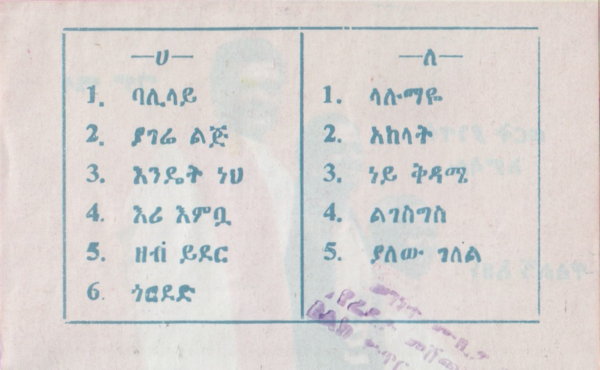 —ሀ—
1. ባሊላይ
2. ያገሬ ልጅ
3. እንዴት ነህ
4. እሪ እምቧ
5. ዘብ ይደር
6. ጎሮደድ
—ለ—
1. ላሉማዬ
2. አከላት
3. ነይ ቅዳሜ
4. ልገስግስ
5. ያለው ገለል